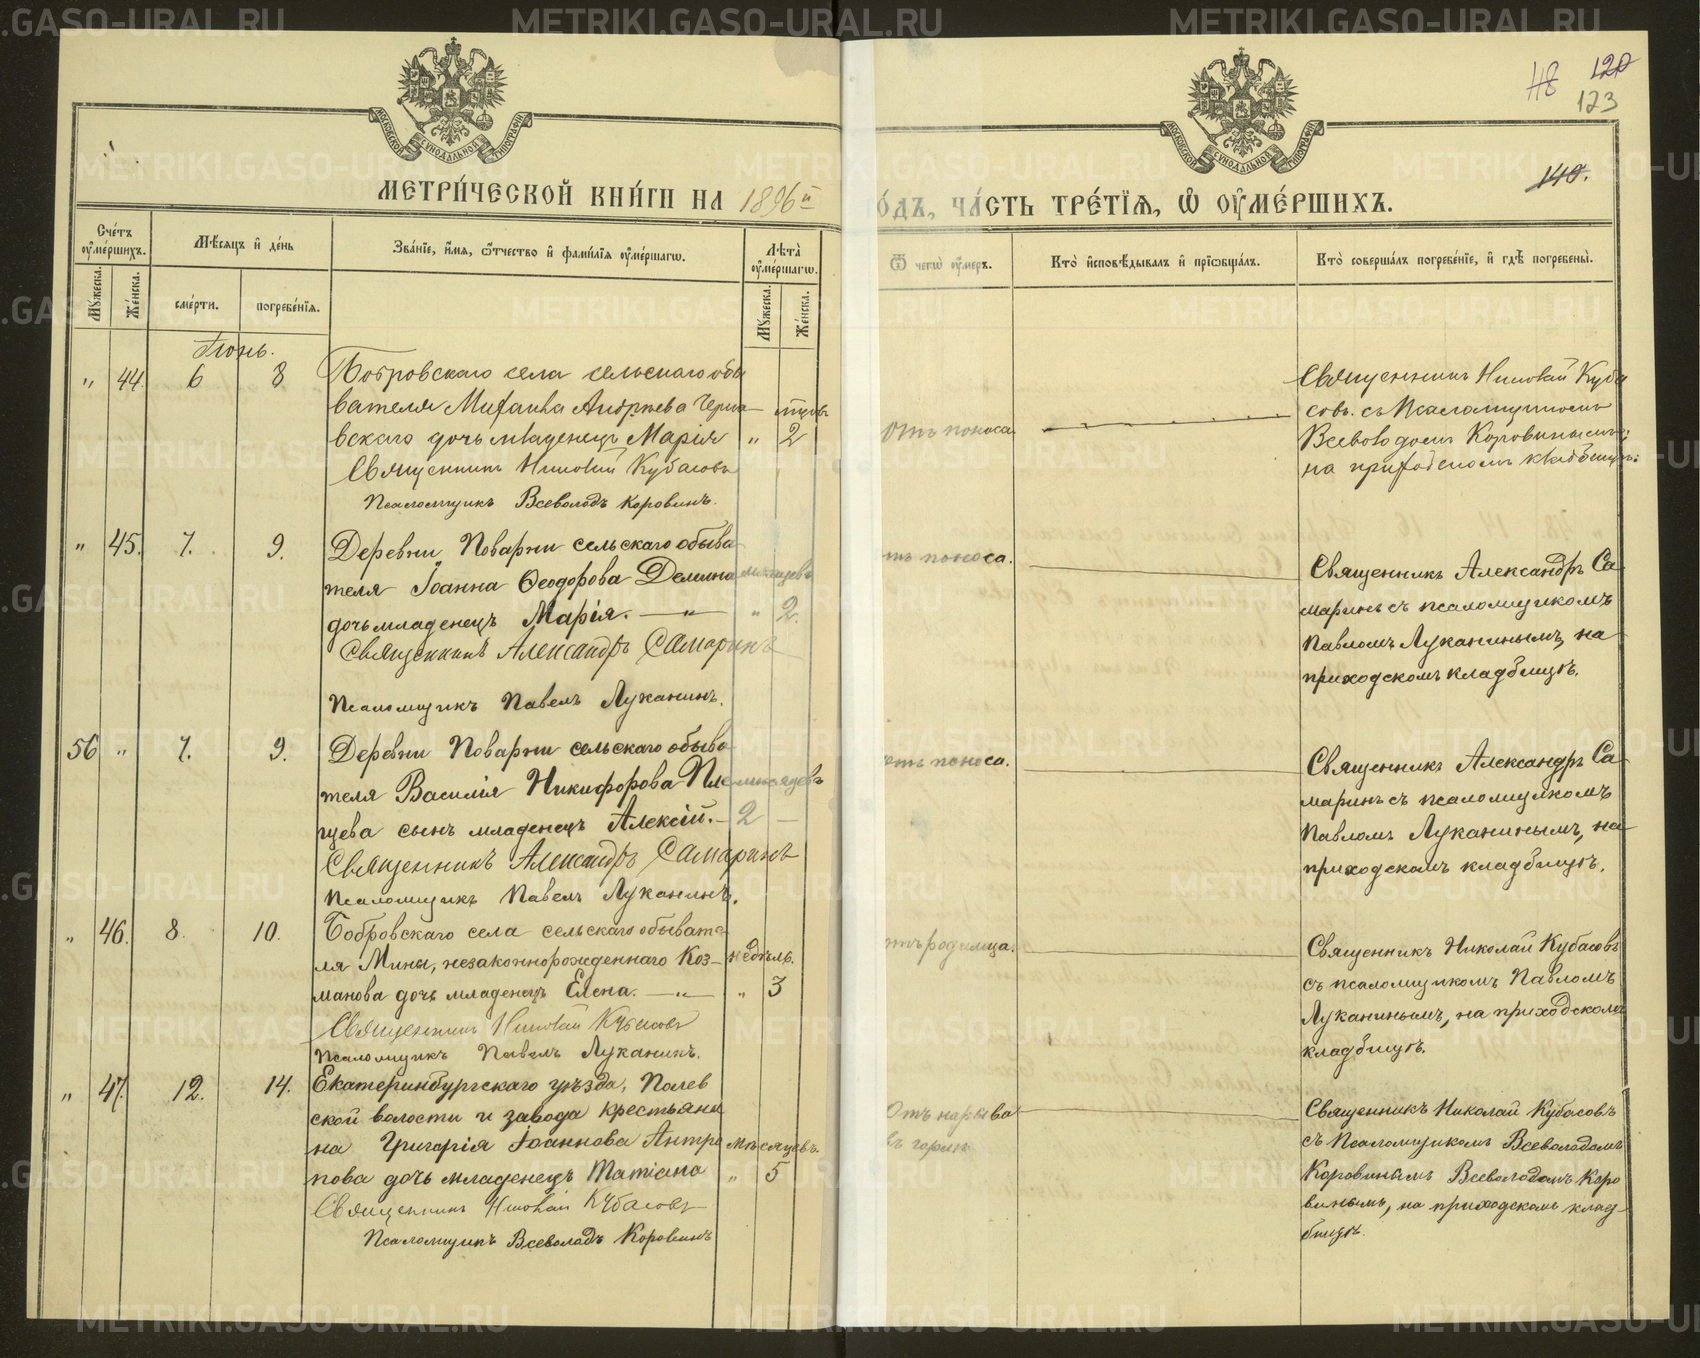 МЕТРИ́ЧЕСКОЙ КНИ́ГИ НА 1896й
ГО́ДЪ, ЧА́СТЬ ТРЕ́ТЇѦ, Ѡ҆ ОУ҆МЕ́РШИХЪ.
120
123
140.
Сче́тъ оу҆ме́ршихъ.
Мѣ́сѧцъ и҆ де́нь
Зва́нїе, и҆́мѧ, ѻ҆́тчество и҆ фами́лїѧ оу҆ме́ршагѡ.
Лѣ́та оу҆ме́ршагѡ.
Ѿ чегѡ̀ оу҆́меръ.
Кто̀ и҆сповѣ́дывалъ и҆ прїѡбща́лъ.
Кто̀ соверша́лъ погребе́нїе, и҆ гдѣ̀ погребены̀.
Мꙋ́жеска.
Же́нска.
сме́рти.
погребе́нїѧ.
Мꙋ́жеска.
Же́нска.
Іюнь.
" 44. 6 8
Бобровскаго села сельскаго обы
вателя Михаила Андреева Черна
вскаго дочь младенецъ Марія
Священникъ Николай Кубасовъ
Псаломщикъ Всеволодъ Коровинъ.
" 2
Отъ поноса.
Священникъ Николай Куба
совъ съ Псаломщикомъ
Всеволодомъ Коровинымъ,
на приходскомъ кладбищѣ.
" 45. 7. 9.
Деревни Поварни сельскаго обыва
теля Іоанна Ѳеодорова Демина
дочь младенецъ Марія. — " —
Священникъ Александръ Самаринъ
Псаломщикъ Павелъ Луканинъ.
мѣсяцевъ
" 2.
отъ поноса.
Священникъ Александръ Са
маринъ съ псаломщикомъ
Павломъ Луканинымъ, на
приходскомъ кладбищѣ.
56 " 7. 9.
Деревни Поварни сельскаго обыва
теля Василія Никифорова Пле
щева сынъ младенецъ Алексій. —
Священникъ Александръ Самаринъ
Псаломщикъ Павелъ Луканинъ.
мѣсяцевъ
2 —
отъ поноса.
Священникъ Александръ Са
маринъ съ псаломщикомъ
Павломъ Луканинымъ, на
приходскомъ кладбищѣ.
" 46. 8. 10.
Бобровскаго села сельскаго обывате
ля Мины, незаконнорожденнаго Коз-
манова дочь младенецъ Елена. — " —
Священникъ Николай Кубасовъ
Псаломщикъ Павелъ Луканинъ.
недѣль.
" 3
отъ родимца.
Священникъ Николай Кубасовъ
съ псаломщикомъ Павломъ
Луканинымъ, на приходскомъ
кладбищѣ.
" 47. 12. 14.
Екатеринбургскаго уѣзда, Полев
ской волости и завода крестьяни
на Григорія Іоаннова Антро
пова дочь младенецъ Татіана
Священникъ Николай Кубасовъ
Псаломщикъ Всеволодъ Коровинъ
мѣсяцевъ.
" 5
Отъ нарыва
въ горлѣ
Священникъ Николай Кубасовъ
съ Псаломщикомъ Всеволодомъ
Коровинымъ Всеволодомъ Коро
винымъ, на приходскомъ клад-
бищѣ.
METRIKI.GASO-URAL.RU